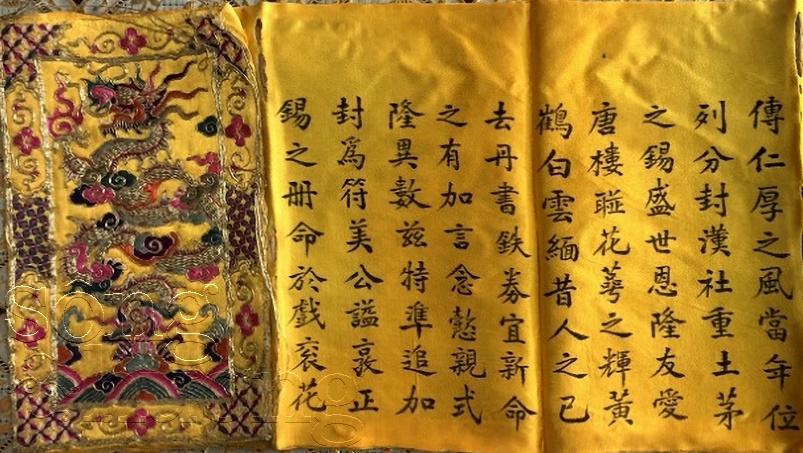 傳仁厚之風當年位
列分封漢社重土茅
之錫盛世恩隆友愛
唐樓聯花萼之輝黃
鶴白雲緬昔人之已
去丹書鉄券宜新命
之有加言念懿親式
隆異數茲特準追加
封爲符美公謚哀正
錫之冊命於戲袞花
song